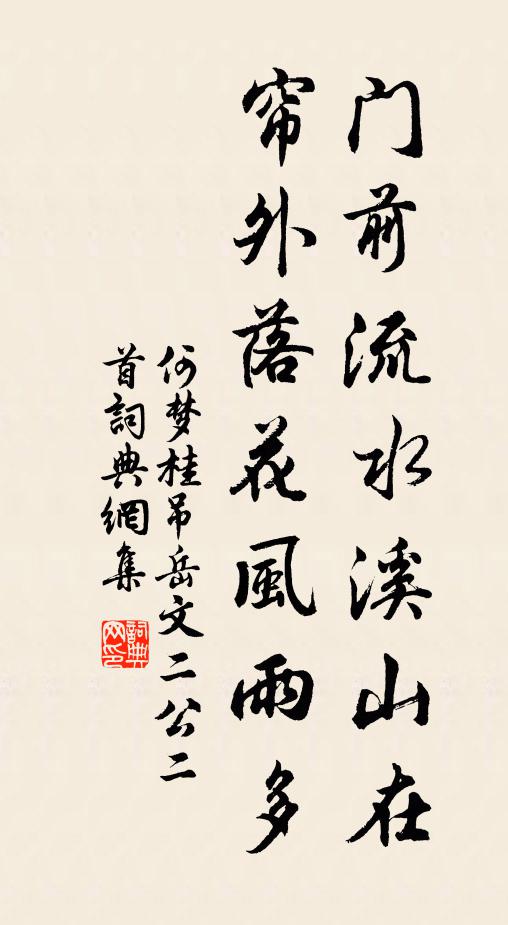 门前流水溪山在
帘外落花風雨多
何梦桂吊岳文二公二
首詞典網集
詞典
网印